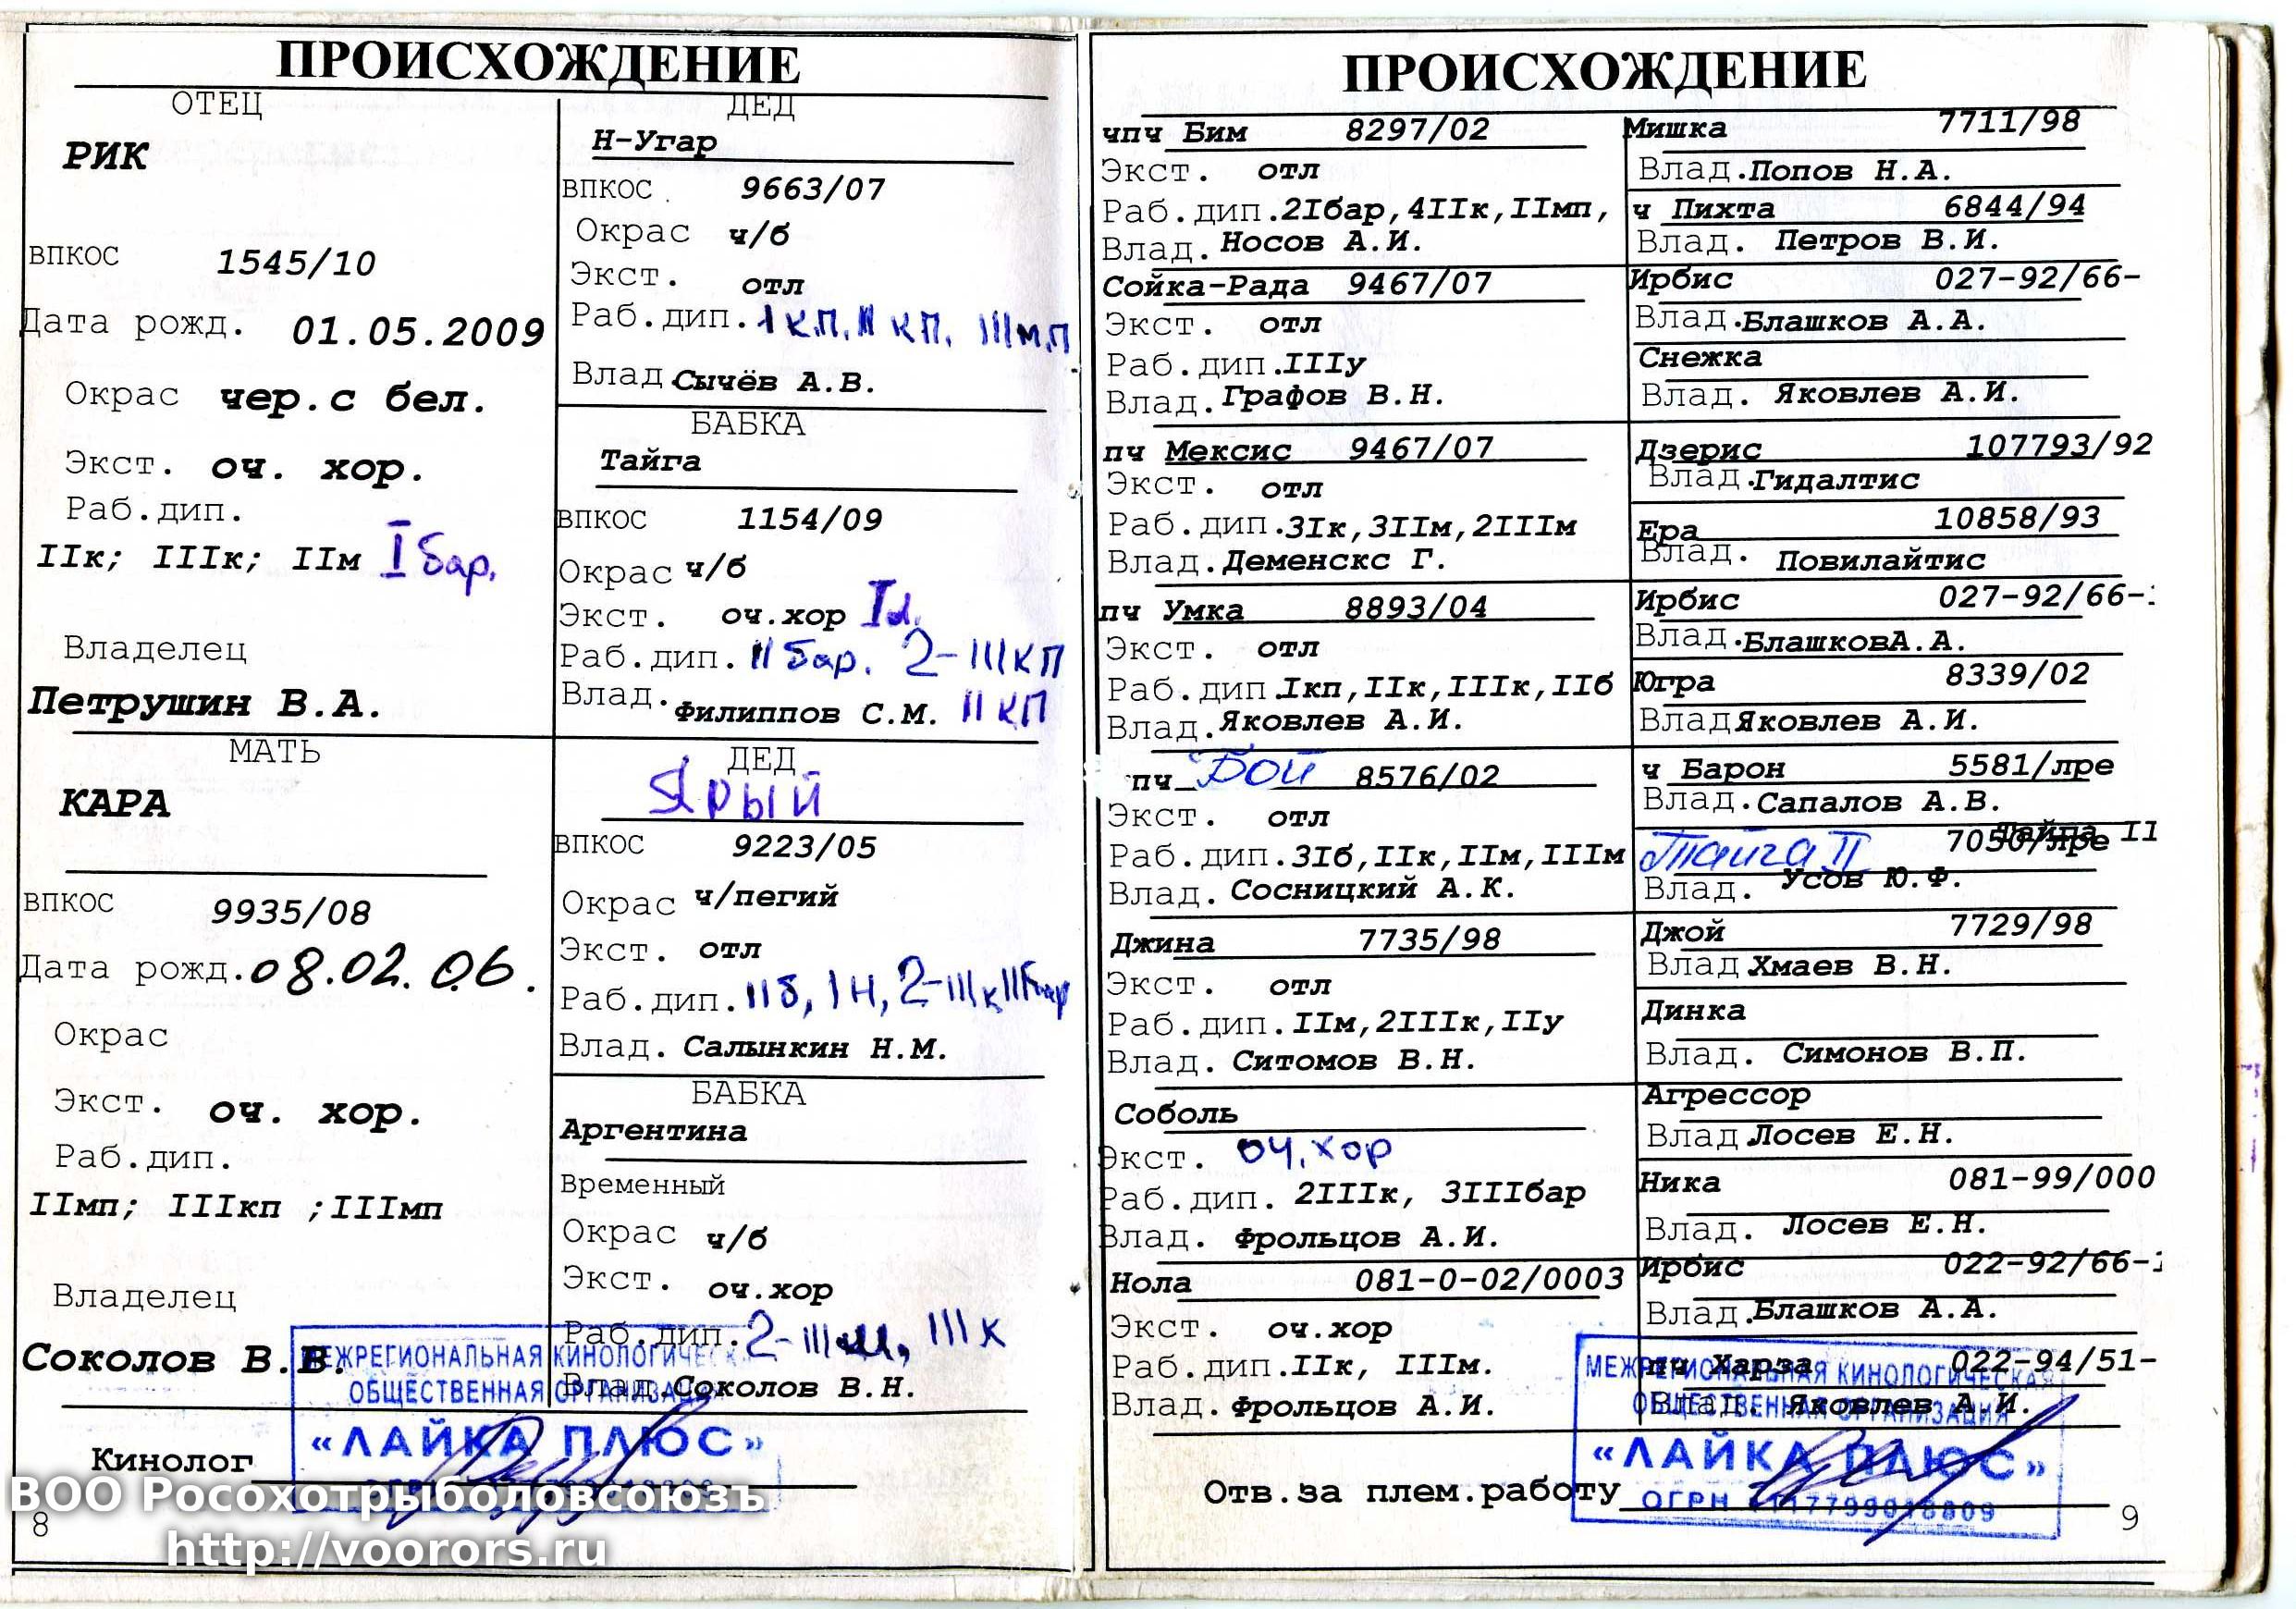 ПРОИСХОЖДЕНИЕ
ОТЕЦ
РИК
ВПКОС 1545/10
Дата рожд. 01.05.2009
Окрас чер.с бел.
Экст. оч. хор.
Раб.дип.
IIк; IIIк; IIм I бар.
Владелец
Петрушин В.А.
МАТЬ
КАРА
ВПКОС 9935/08
Дата рожд. 08.02.06.
Окрас
Экст. оч. хор.
Раб.дип.
IIмп; IIIкп ;IIIмп
Владелец
Соколов В.В.
ДЕД
Н-Угар
ВПКОС. 9663/07
Окрас ч/б
Экст. отл
Раб.дип. I к.п. III кп, III м.п
Влад Сычёв А.В.
БАБКА
Тайга
ВПКОС 1154/09
Окрас ч/б
Экст. оч.хор
Раб.дип. II бар. 2-III кп
Влад. Филиппов С.М. II кп
ДЕД
Ярый
ВПКОС 9223/05
Окрас ч/пегий
Экст. отл
Раб.дип. II б, I н, 2-III к II бар
Влад. Салынкин Н.М.
БАБКА
Аргентина
Временный
Окрас ч/б
Экст. оч.хор
Раб.дип. 2-III III к
Влад. Соколов В.Н.
МЕЖРЕГИОНАЛЬНАЯ КИНОЛОГИЧЕСКАЯ
ОБЩЕСТВЕННАЯ ОРГАНИЗАЦИЯ
«ЛАЙКА ПЛЮС»
Кинолог
8
ПРОИСХОЖДЕНИЕ
чпч Бим 8297/02
Экст. отл
Раб.дип.2Iбар,4IIк,IIмп,
Влад. Носов А.И.
Сойка-Рада 9467/07
Экст. отл
Раб.дип.IIIу
Влад.Графов В.Н.
пч Мексис 9467/07
Экст. отл
Раб.дип.3Iк,3IIм,2IIIм
Влад.Деменскс Г.
пч Умка 8893/04
Экст. отл
Раб.дип.Iкп,IIк,IIIк,IIб
Влад.Яковлев А.И.
пч Бой 8576/02
Экст. отл
Раб.дип.3Iб,IIк,IIм,IIIм
Влад. Сосницкий А.К.
Джина 7735/98
Экст. отл
Раб.дип.IIм,2IIIк,IIу
Влад. Ситомов В.Н.
Соболь
Экст. оч.хор
Раб.дип. 2IIIк, 3IIIбар
Влад. Фрольцов А.И.
Нола 081-0-02/0003
Экст. оч.хор
Раб.дип.IIк, IIIм.
Влад. Фрольцов А.И.
Мишка 7711/98
Влад.Попов Н.А.
ч Пихта 6844/94
Влад. Петров В.И.
Ирбис 027-92/66-
Влад.Блашков А.А.
Снежка
Влад. Яковлев А.И.
Дзерис 107793/92
Влад.Гидалтис
Ера 10858/93
Влад. Повилайтис
Ирбис 027-92/66-1
Влад.БлашковА.А.
Югра 8339/02
Влад Яковлев А.И.
ч Барон 5581/лре
Влад.Сапалов А.В.
Тайга II 7050/лре
Влад. Усов Ю.Ф.
Джой 7729/98
Влад Хмаев В.Н.
Динка
Влад. Симонов В.П.
Агрессор
Влад Лосев Е.Н.
Ника 081-99/000
Влад. Лосев Е.Н.
Ирбис 022-92/66-1
Влад.Блашков А.А.
пч Харза 022-94/51-
Влад. Яковлев А.И.
МЕЖРЕГИОНАЛЬНАЯ КИНОЛОГИЧЕСКАЯ
ОБЩЕСТВЕННАЯ ОРГАНИЗАЦИЯ
«ЛАЙКА ПЛЮС»
ОГРН
Отв.за плем.работу
9
ВОО Росохотрыболовсоюзъ
http://voorors.ru